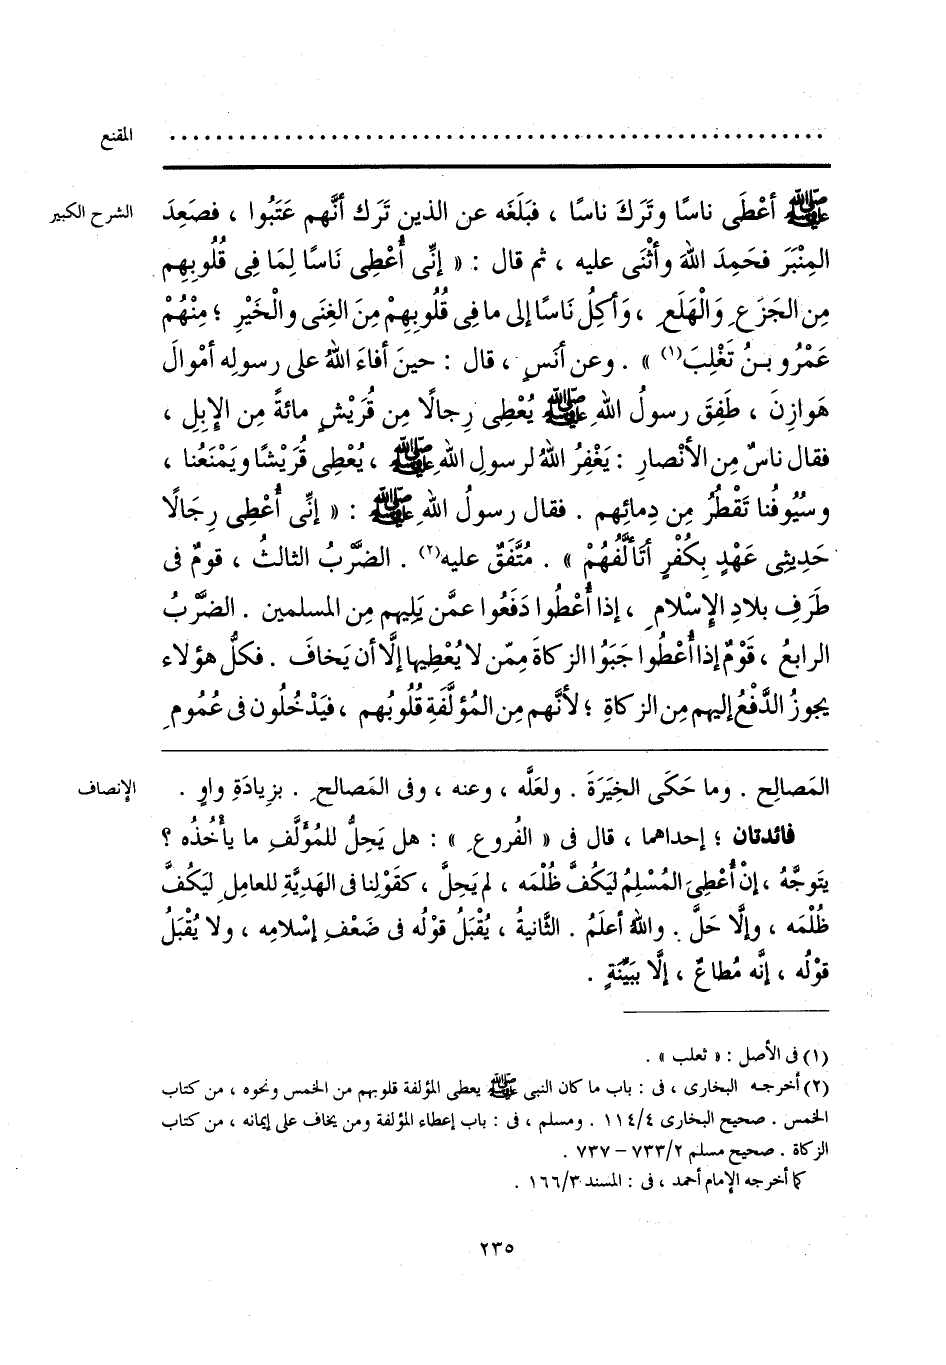 المقنع ........................................................
الشرح الكبير
ﷺ أعْطَى ناسًا وتَرَكَ ناسًا ، فبَلَغَه عن الذين تَرَك أنَّهم عَتَبُوا ، فصَعِدَ
المِنْبَرَ فحَمِدَ اللهَ وأثْنَى عليه ، ثم قال : « إنِّى أُعْطِى نَاسًا لِمَا فِى قُلُوبِهِم
مِن الجَزَعِ وَالْهَلَعِ ، وَأكِلُ نَاسًا إلى ما فِى قُلُوبِهِمْ مِنَ الغِنَى والْخَيْرِ ؛ مِنْهُمْ
عَمْرُو بنُ تَغْلِبَ(١) » . وعن أنَسٍ ، قال : حينَ أفاءَ اللهُ على رسولِه أمْوالَ
هَوازِنَ ، طَفِقَ رسولُ اللهِ ﷺ يُعْطِى رِجالًا مِن قُرَيْشٍ مائةً مِن الإِبِلِ ،
فقال ناسٌ مِن الأنْصارِ : يَغْفِرُ اللهُ لرسولِ اللهِ ﷺ ، يُعْطِى قُرَيْشًا ويَمْنَعُنا ،
وسُيُوفُنا تَقْطُرُ مِن دِمائِهم . فقال رسولُ اللهِ ﷺ : « إنِّى أُعْطِى رِجَالًا
حَدِيثِى عَهْدٍ بِكُفْرٍ أتَألَّفُهُمْ » . مُتَّفَقٌ عليه(٢) . الضَّرْبُ الثالثُ ، قومٌ فى
طَرَفِ بلادِ الإِسْلامِ ، إذا أُعْطُوا دَفَعُوا عمَّن يَلِيهم مِن المسلمين . الضَّرْبُ
الرابعُ ، قَوْمٌ إذا أُعْطُوا جَبَوُا الزكاةَ مِمّن لا يُعْطِيها إلَّا أن يَخافَ . فكلُّ هؤلاء
يجوزُ الدَّفْعُ إليهم مِن الزكاةِ ؛ لأنَّهم مِن المُؤلَّفَةِ قُلُوبُهم ، فيَدْخُلُون فى عُمُومِ
الإنصاف
المَصالِح . وما حَكَى الخِيَرَةَ . ولعَلَّه ، وعنه ، وفى المَصالحِ . بزِيادَةِ واوٍ .
فائدتان ؛ إحداهما ، قال فى « الفُروعِ » : هل يَحِلُّ للمُؤَلَّفِ ما يأْخُذُه ؟
يتَوجَّهُ ، إنْ أُعْطِىَ المُسْلِمُ ليَكُفَّ ظُلْمَه ، لم يَحِلَّ ، كقَوْلِنا فى الهَدِيَّةِ للعامِلِ ليَكُفَّ
ظُلْمَه ، وإلَّا حَلَّ . واللهُ أعلَمُ . الثَّانيةُ ، يُقْبَلُ قوْلُه فى ضَعْفِ إسْلامِه ، ولا يُقْبَلُ
قوْلُه ، إنَّه مُطاعٌ ، إلَّا ببَيِّنَةٍ .
(١) فى الأصل : « ثعلب » .
(٢) أخرجه البخارى ، فى : باب ما كان النبى ﷺ يعطى المؤلفة قلوبهم من الخمس ونحوه ، من كتاب
الخمس . صحيح البخارى ٤/ ١١٤ . ومسلم ، فى : باب إعطاء المؤلفة ومن يخاف على إيمانه ، من كتاب
الزكاة . صحيح مسلم ٢/ ٧٣٣ – ٧٣٧ .
كما أخرجه الإمام أحمد ، فى : المسند ٣/ ١٦٦ .
٢٣٥